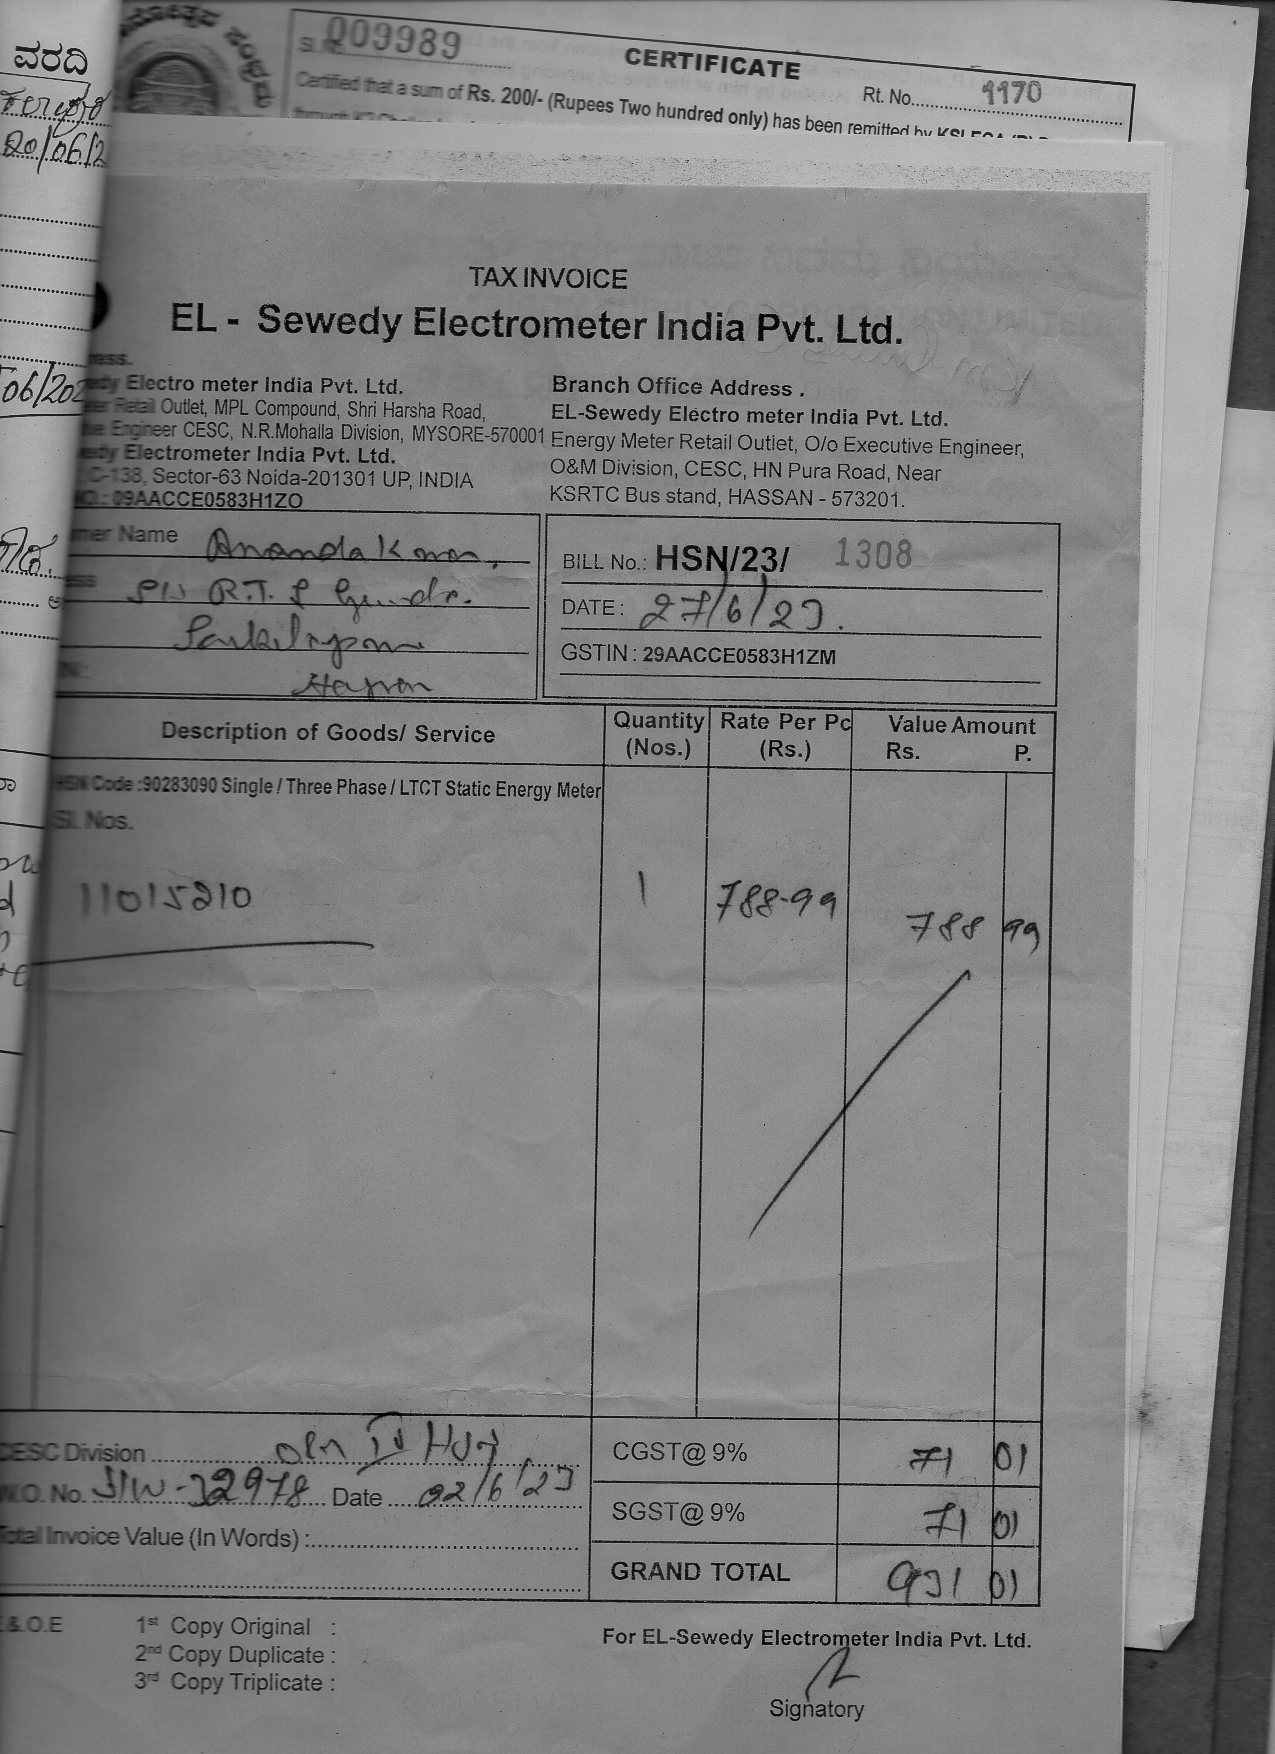 ವರದಿ
20/06/2
06/202
009989
CERTIFICATE
Rt. No.............. 1170
Certified that a sum of Rs. 200/- (Rupees Two hundred only) has been remitted by
TAX INVOICE
EL - Sewedy Electrometer India Pvt. Ltd.
Electro meter India Pvt. Ltd.
Retail Outlet, MPL Compound, Shri Harsha Road,
Engineer CESC, N.R.Mohalla Division, MYSORE-570001
Electrometer India Pvt. Ltd.
C-138, Sector-63 Noida-201301 UP, INDIA
09AACCE0583H1ZO
Branch Office Address .
EL-Sewedy Electro meter India Pvt. Ltd.
Energy Meter Retail Outlet, O/o Executive Engineer,
O&M Division, CESC, HN Pura Road, Near
KSRTC Bus stand, HASSAN - 573201.
Name
BILL No.: HSN/23/ 1308
DATE : 27/6/23.
GSTIN : 29AACCE0583H1ZM
Description of Goods/ Service
Quantity (Nos.)
Rate Per Pc (Rs.)
Value Amount
Rs. P.
HSN Code :90283090 Single / Three Phase / LTCT Static Energy Meter
Sl. Nos.
11015210 1 788-99 788 99
CESC Division
W.O. No. Date 02/6/23
Total Invoice Value (In Words) :
CGST@ 9% 71 01
SGST@ 9% 71 01
GRAND TOTAL 931 01
E&.O.E
1st Copy Original :
2nd Copy Duplicate :
3rd Copy Triplicate :
For EL-Sewedy Electrometer India Pvt. Ltd.
Signatory